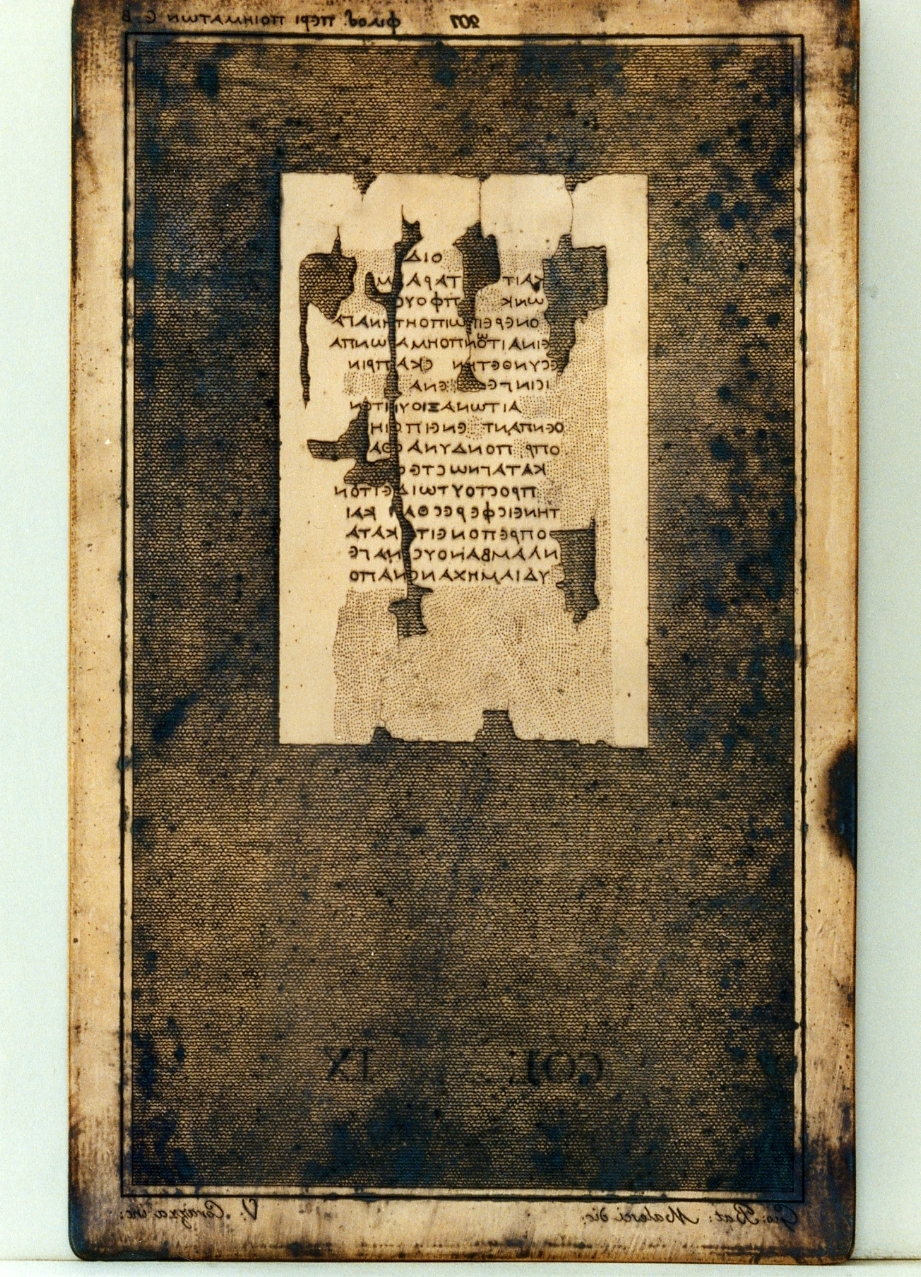 207 φιλοδ. ΠΕΡΙ ΠΟΙΗΜΑΤΩΝ C. B
ΟΙΔ
ΚΑΙΤ ΤΑΡΑ Μ
ΩΝΚ ΤΦΟΥΟ
ΟΝΕΡΕΙΤΩΠΟΗΤΗΝΑΓΑ
ΕΙΝΕΙΑΙΤΟΝΠΟΗΜΑ ΜΩΝΠΑ
ϹΥΝΘΕΤΕΝ ϹΚΑ ΠΡΙΝ
ΙϹΙΝΓΕ ΕΝΑ
ΑΙΤΩΝΑΞΙΟΥ ΙΤΕΝ
ΟϹΝΠΑΝΤ ΕΝΕΙΠΕΙΗ
ΟΠΡ ΠΟΝΔΥΝΑ ΘΑ
ΚΑΤΑΓΝΩϹΤΕΟ
ΠΡΟϹΤΟΥΤΩΙΔΕΙΤΟΝ
ΤΗΝΕΙϹΦΕΡΕϹΘΑΙ ΚΑΙ
ΟΠΡΕΠΟΝΕΙΤ ΚΑΤΑ
ΝΛΑΜΒΑΝΟΥϹ ΝΑΓΕ
ΥΔΙΑΜΗΧΑΝΟΝΑΠΟ
COL. IX
Gio. Bat: Malesci dis. V. Corazza inc.